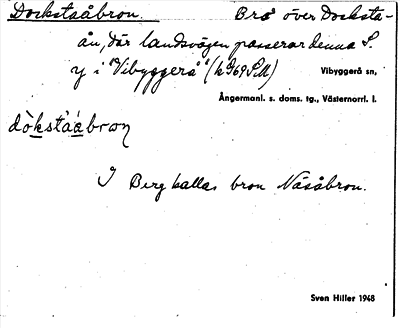 Dockstaåbron. Bro över Docksta-
ån, där landsvägen passerar denna S.
y i "Vibyggerå" (k G69 SM) Vibyggerå sn,
Ångermanl. s. doms. tg., Västernorrl. l.
dòkstaabron
I Berg kallas bron Näsåbron.
Sven Hiller 1948